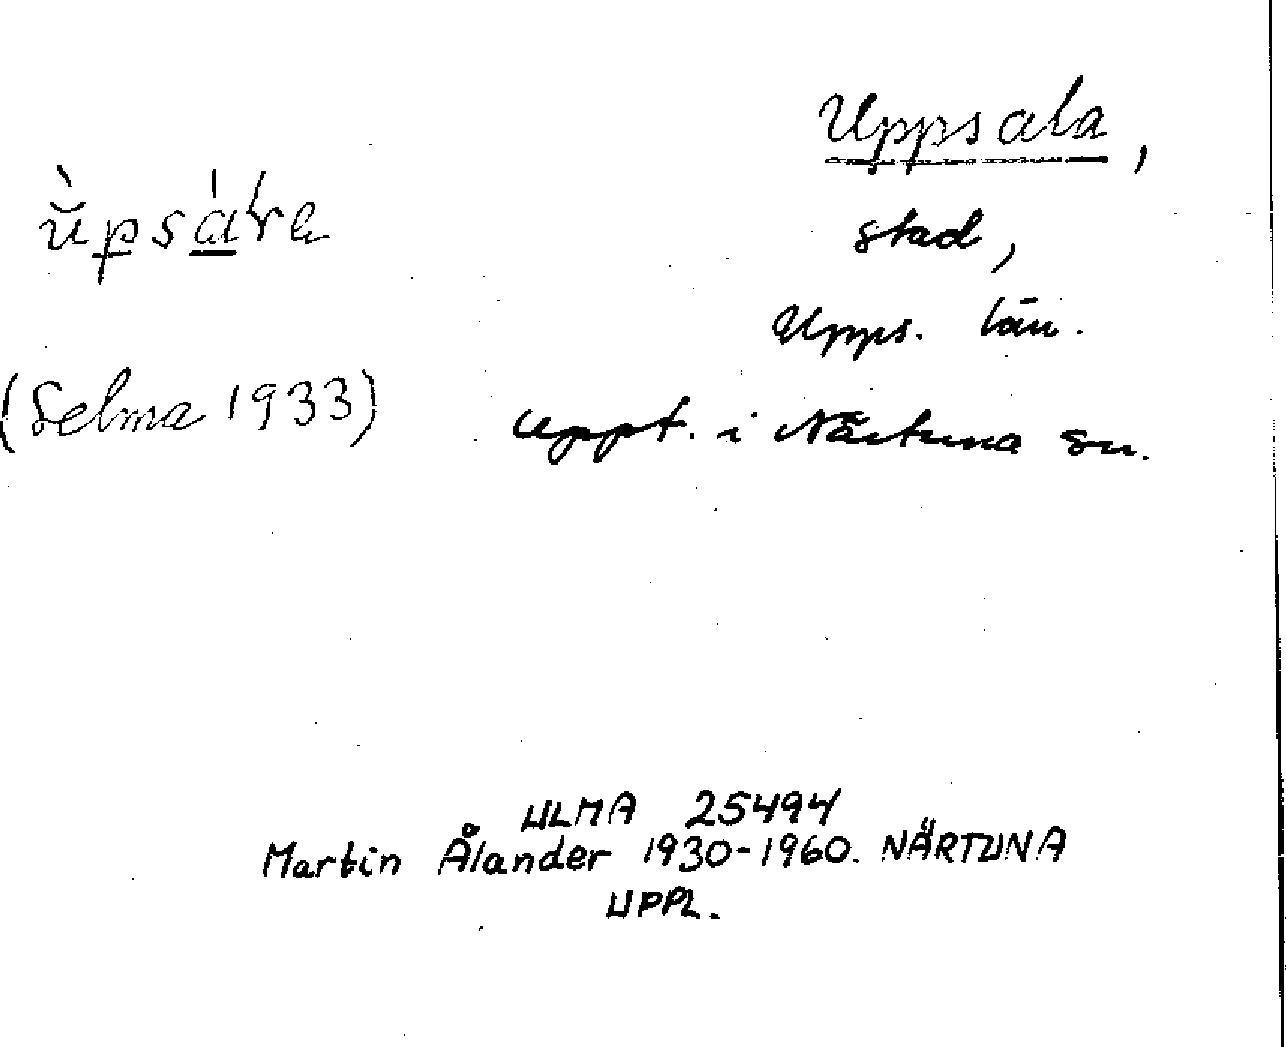 Uppsala,
ùpsála
stad,
Upps. län.
(Selma 1933)
Uppt. i Närtuna sn.
ULMA 25494
Martin Ålander 1930-1960. NÄRTUNA
UPPL.